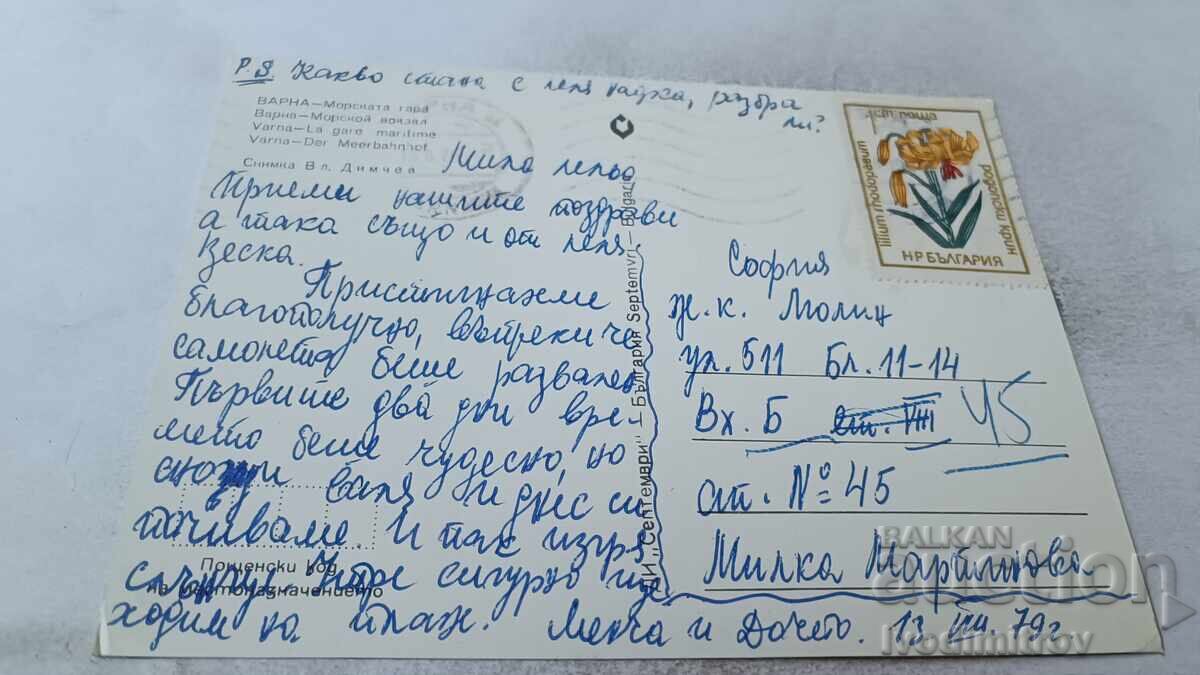 P.S. Какво стана с леля Надка, разбра
ли?
ВАРНА—Морската гара
Варна—Морской вокзал
Varna—La gare maritime
Varna—Der Meerbahnhof
Снимка Вл. Димчев
Мила лельо
Приеми нашите поздрави
а така също и от леля
Веска.
Пристигнахме
благополучно, въпреки че
самолета беше развален
Първите два дни вре-
мето беше чудесно, но
снощи валя и днес си
почиваме. И пак изгря
слънце. Утре сигурно ще
ходим на плаж. Менча и Дочето. 13 VIII. 79 г
Пощенски код
на местоназначението
ДИ „Септември" — България Septemvri — Bulgaria
поща
lilium rhodopaeum
родопски крин
НР БЪЛГАРИЯ
София
ж.к. Люлин
ул. 511 Бл. 11-14
Вх. Б ет. VIII 45
ап. № 45
Милка Мартинова
BALKAN
auction
ivodimitrov